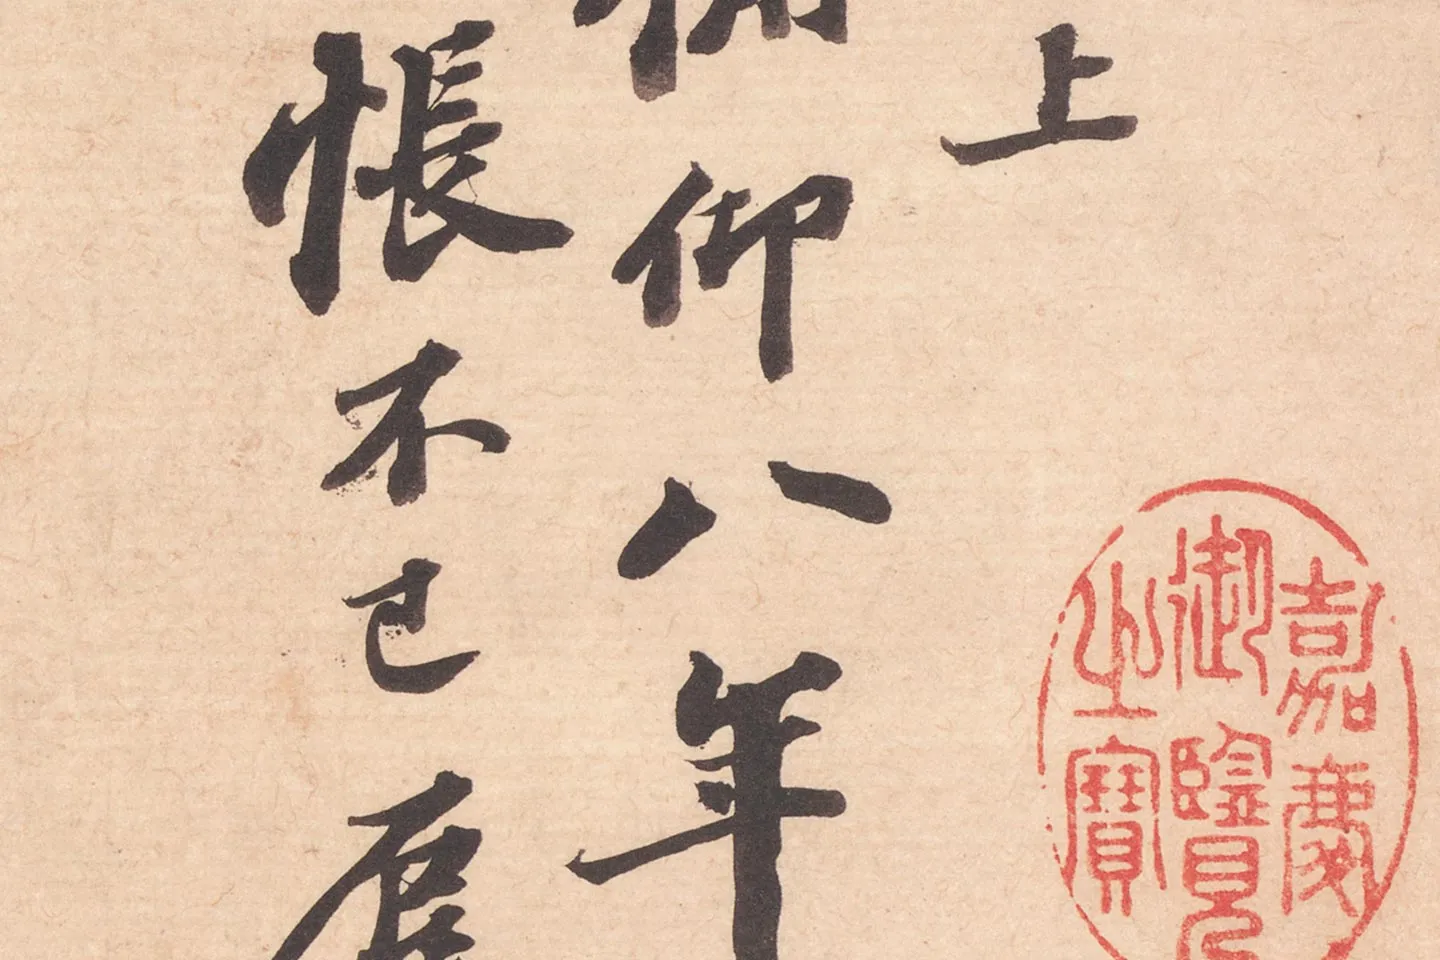 上
仰八年
悵不已
嘉慶
御覽
之寶